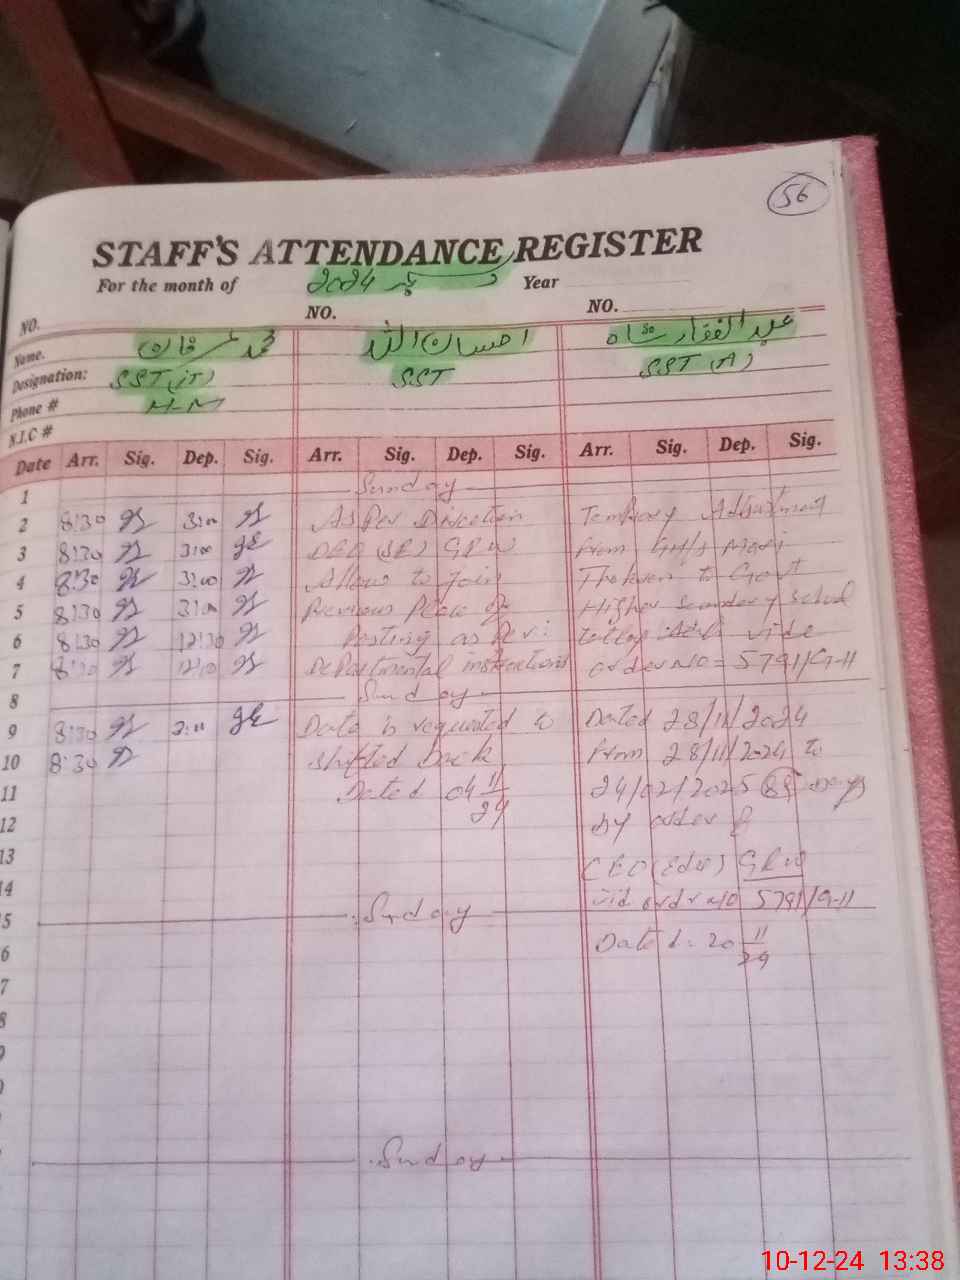 56
STAFF'S ATTENDANCE REGISTER
For the month of دسمبر 2024 Year
NO. NO. NO.
Name. محمد عمر فاروق احسان اللہ عبد الغفار شاہ
Designation: SST (IT) SST SST (A)
Phone # H-M
N.I.C #
Date Arr. Sig. Dep. Sig. Arr. Sig. Dep. Sig. Arr. Sig. Dep. Sig.
1 Sunday
2 8:30 3:00 As Per Direction Temporary Adjustment
3 8:30 3:00 DEO (SE) GRW from GH/S
4 8:30 3:00 Allow to Join to Govt
5 8:30 3:00 Previous Place of Higher Secondary School
6 8:30 12:30 Posting as Per vide
7 8:30 Departmental instructions order NO = 5791/G-11
8 Sunday
9 8:30 Data is requested to Dated 28/11/2024
10 8:30 Shifted back from 28/11/2024 to
11 Dated 04 11/24 24/02/2025 Days
12 by order of
13 CEO (Edu) GRW
14 vid order NO 5791/G-11
5 Sunday
6 Dated: 20 11/24
7
8
9
0
Sunday
10-12-24 13:38